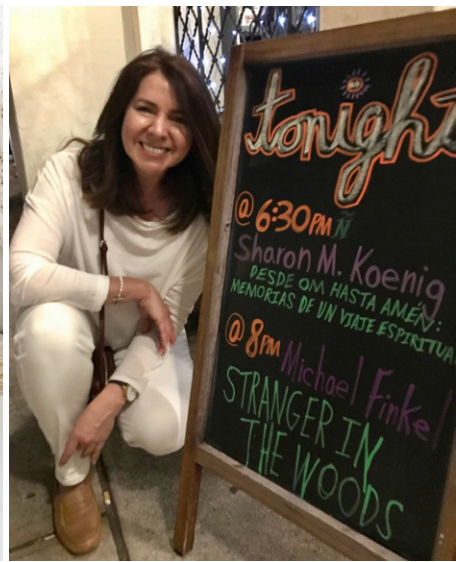 tonight
@ 6:30PM Ñ
Sharon M. Koenig
DESDE OM HASTA AMÉN:
MEMORIAS DE UN VIAJE ESPIRITUAL
@ 8PM Michael Finkel
STRANGER IN
THE WOODS